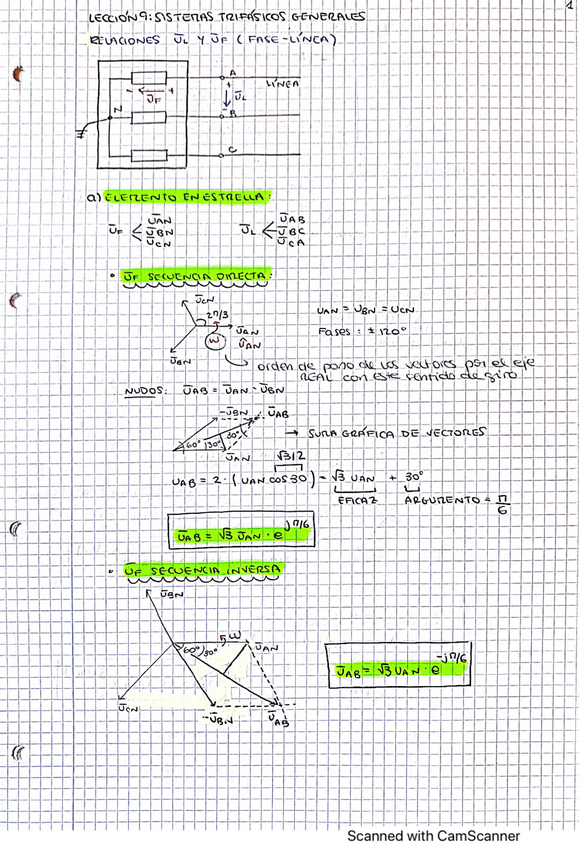 1
LECCIÓN 9: SISTEMAS TRIFÁSICOS GENERALES
RELACIONES U̅L Y U̅F (FASE-LÍNEA)
A
LÍNEA
- U̅F +
+
U̅L
N
- B
C
a) ELEMENTO EN ESTRELLA:
U̅F < U̅AN U̅BN U̅CN
U̅L < U̅AB U̅BC U̅CA
• U̅F SECUENCIA DIRECTA:
U̅CN
2π/3
U̅AN
ω
U̅AN
U̅BN
UAN = UBN = UCN
Fases: ± 120°
orden de paso de los vectores por el eje
REAL con este sentido de giro
NUDOS: U̅AB = U̅AN - U̅BN
-U̅BN U̅AB
60° 30° 30°
U̅AN
→ SUMA GRÁFICA DE VECTORES
√3/2
UAB = 2 · (UAN cos 30) = √3 UAN + 30°
EFICAZ ARGUMENTO = π/6
U̅AB = √3 U̅AN · e^jπ/6
• U̅F SECUENCIA INVERSA
U̅BN
ω
60° 30°
U̅AN
U̅CN
-U̅BN
U̅AB
U̅AB = √3 UAN · e^-jπ/6
Scanned with CamScanner